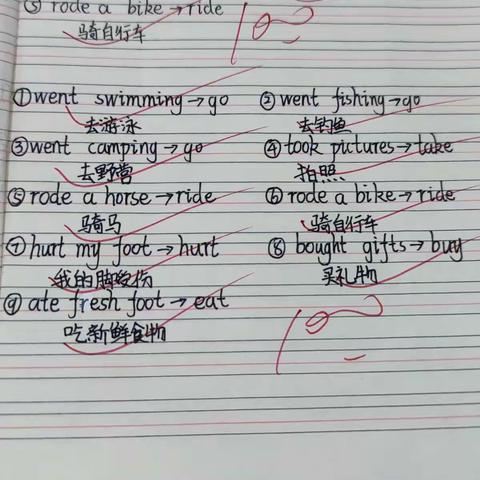 ⑤ rode a bike→ride
骑自行车
100
①went swimming→go ②went fishing→go
去游泳 去钓鱼
③went camping→go ④took pictures→take
去野营 拍照
⑤rode a horse→ride ⑥rode a bike→ride
骑马 骑自行车
⑦hurt my foot→hurt ⑧bought gifts→buy
我的脚受伤 买礼物
⑨ate fresh foot→eat
吃新鲜食物
100